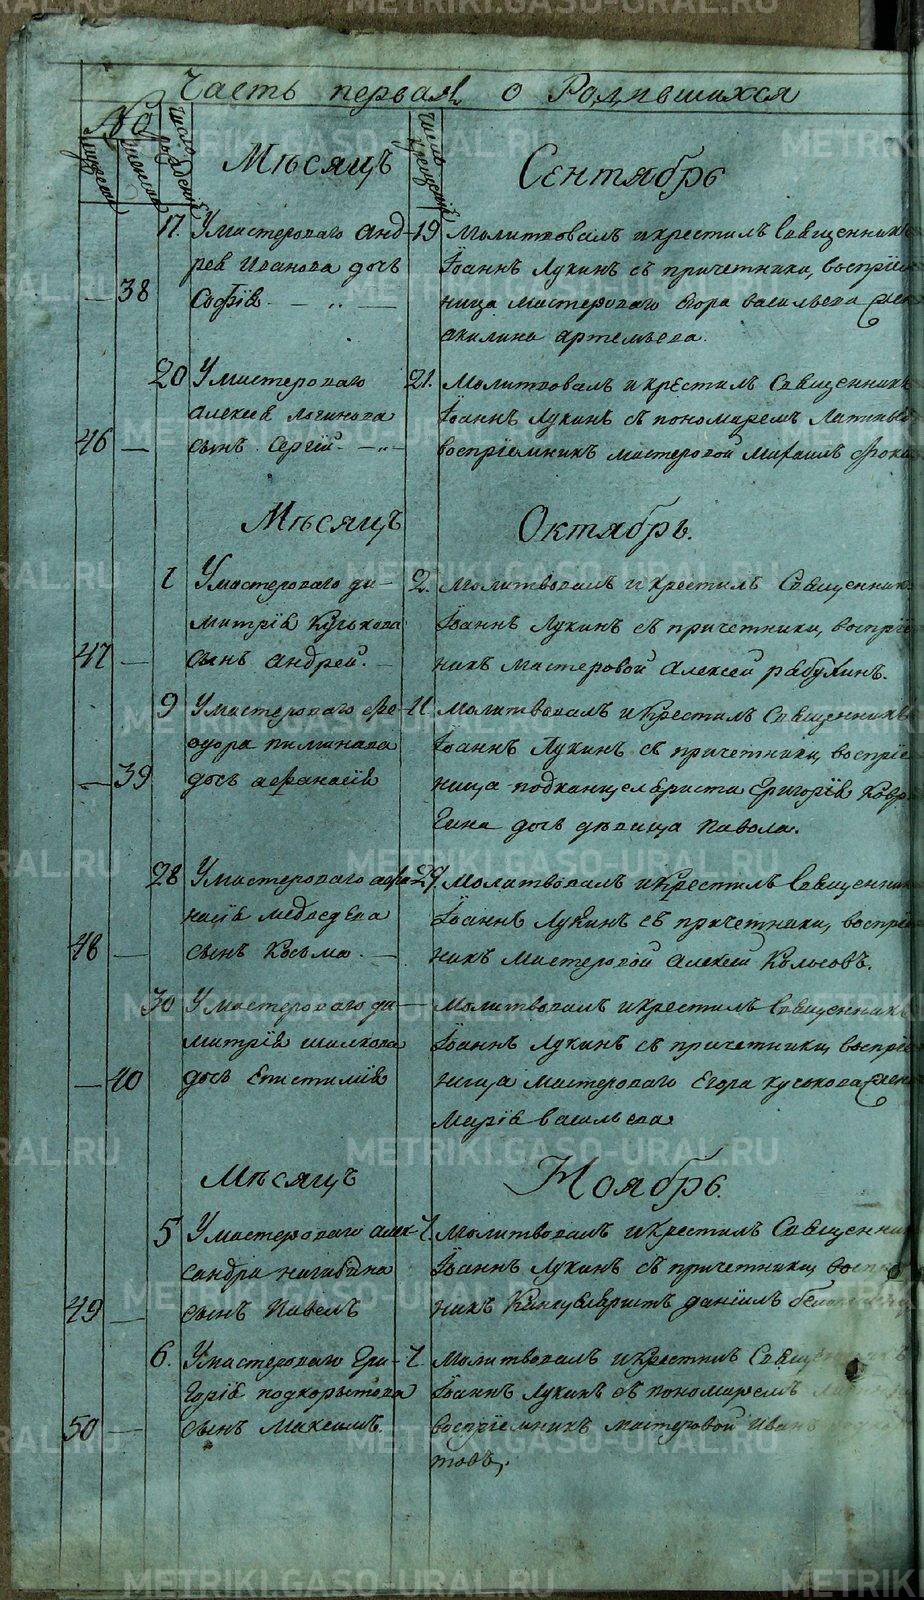 Часть первая о Родившихся
No
Мужеска
Женска
Число рожденій
Мѣсяцъ
Число крещеній
Сентябрь
38
17. У мастероваго Анд-
рея Иванова дочь
Софія
19 Молитвовалъ и крестилъ Священникъ
Іоаннъ Лукинъ съ причетники, воспріем
ница мастероваго Егора Васильева жен
Акилина Артемьева.
46
20 У мастероваго
Алексея Логинова
сынъ Сергій
21. Молитвовалъ и крестилъ Священникъ
Іоаннъ Лукинъ съ пономаремъ
воспріемникъ мастеровой Михаилъ
Мѣсяцъ Октябрь.
47
1 У мастероваго Ди-
митрія Куськова
сынъ Андрей.
2. Молитвовалъ и крестилъ Священник
Іоаннъ Лукинъ съ причетники, воспріе
никъ мастеровой Алексей Рябухинъ.
39
9 У мастероваго Фе-
одора Пилинкова
дочь Афанасія
11. Молитвовалъ и крестилъ Священникъ
Іоаннъ Лукинъ съ причетники, воспріе
ница подканцеляриста Григорія
гина дочь девица Павола.
48
28 У мастероваго Афа
насія Медведева
сынъ Косьма.
29. Молитвовалъ и крестилъ Священник
Іоаннъ Лукинъ съ причетники, воспріе
никъ мастеровой Алексей Колосовъ.
40
30 У мастероваго Ди-
митрія Шилкова
дочь Епистилія
Молитвовалъ и крестилъ Священникъ
Іоаннъ Лукинъ съ причетники, воспріе
ница мастероваго Егора Куськова жен
Марія Васильева
Мѣсяцъ Ноябрь.
49
5 У мастероваго Алек-
сандра Нагибина
сынъ Павелъ
7. Молитвовалъ и крестилъ Священни
Іоаннъ Лукинъ съ причетники, воспр
никъ Канцеляристъ Даніилъ
50
6. У мастероваго Гри-
горія Подкорытова
сынъ Максимъ.
7. Молитвовалъ и крестилъ Свящ
Іоаннъ Лукинъ съ пономаремъ
воспріемникъ мастеровой Иванъ
товъ.
METRIKI.GASO-URAL.RU